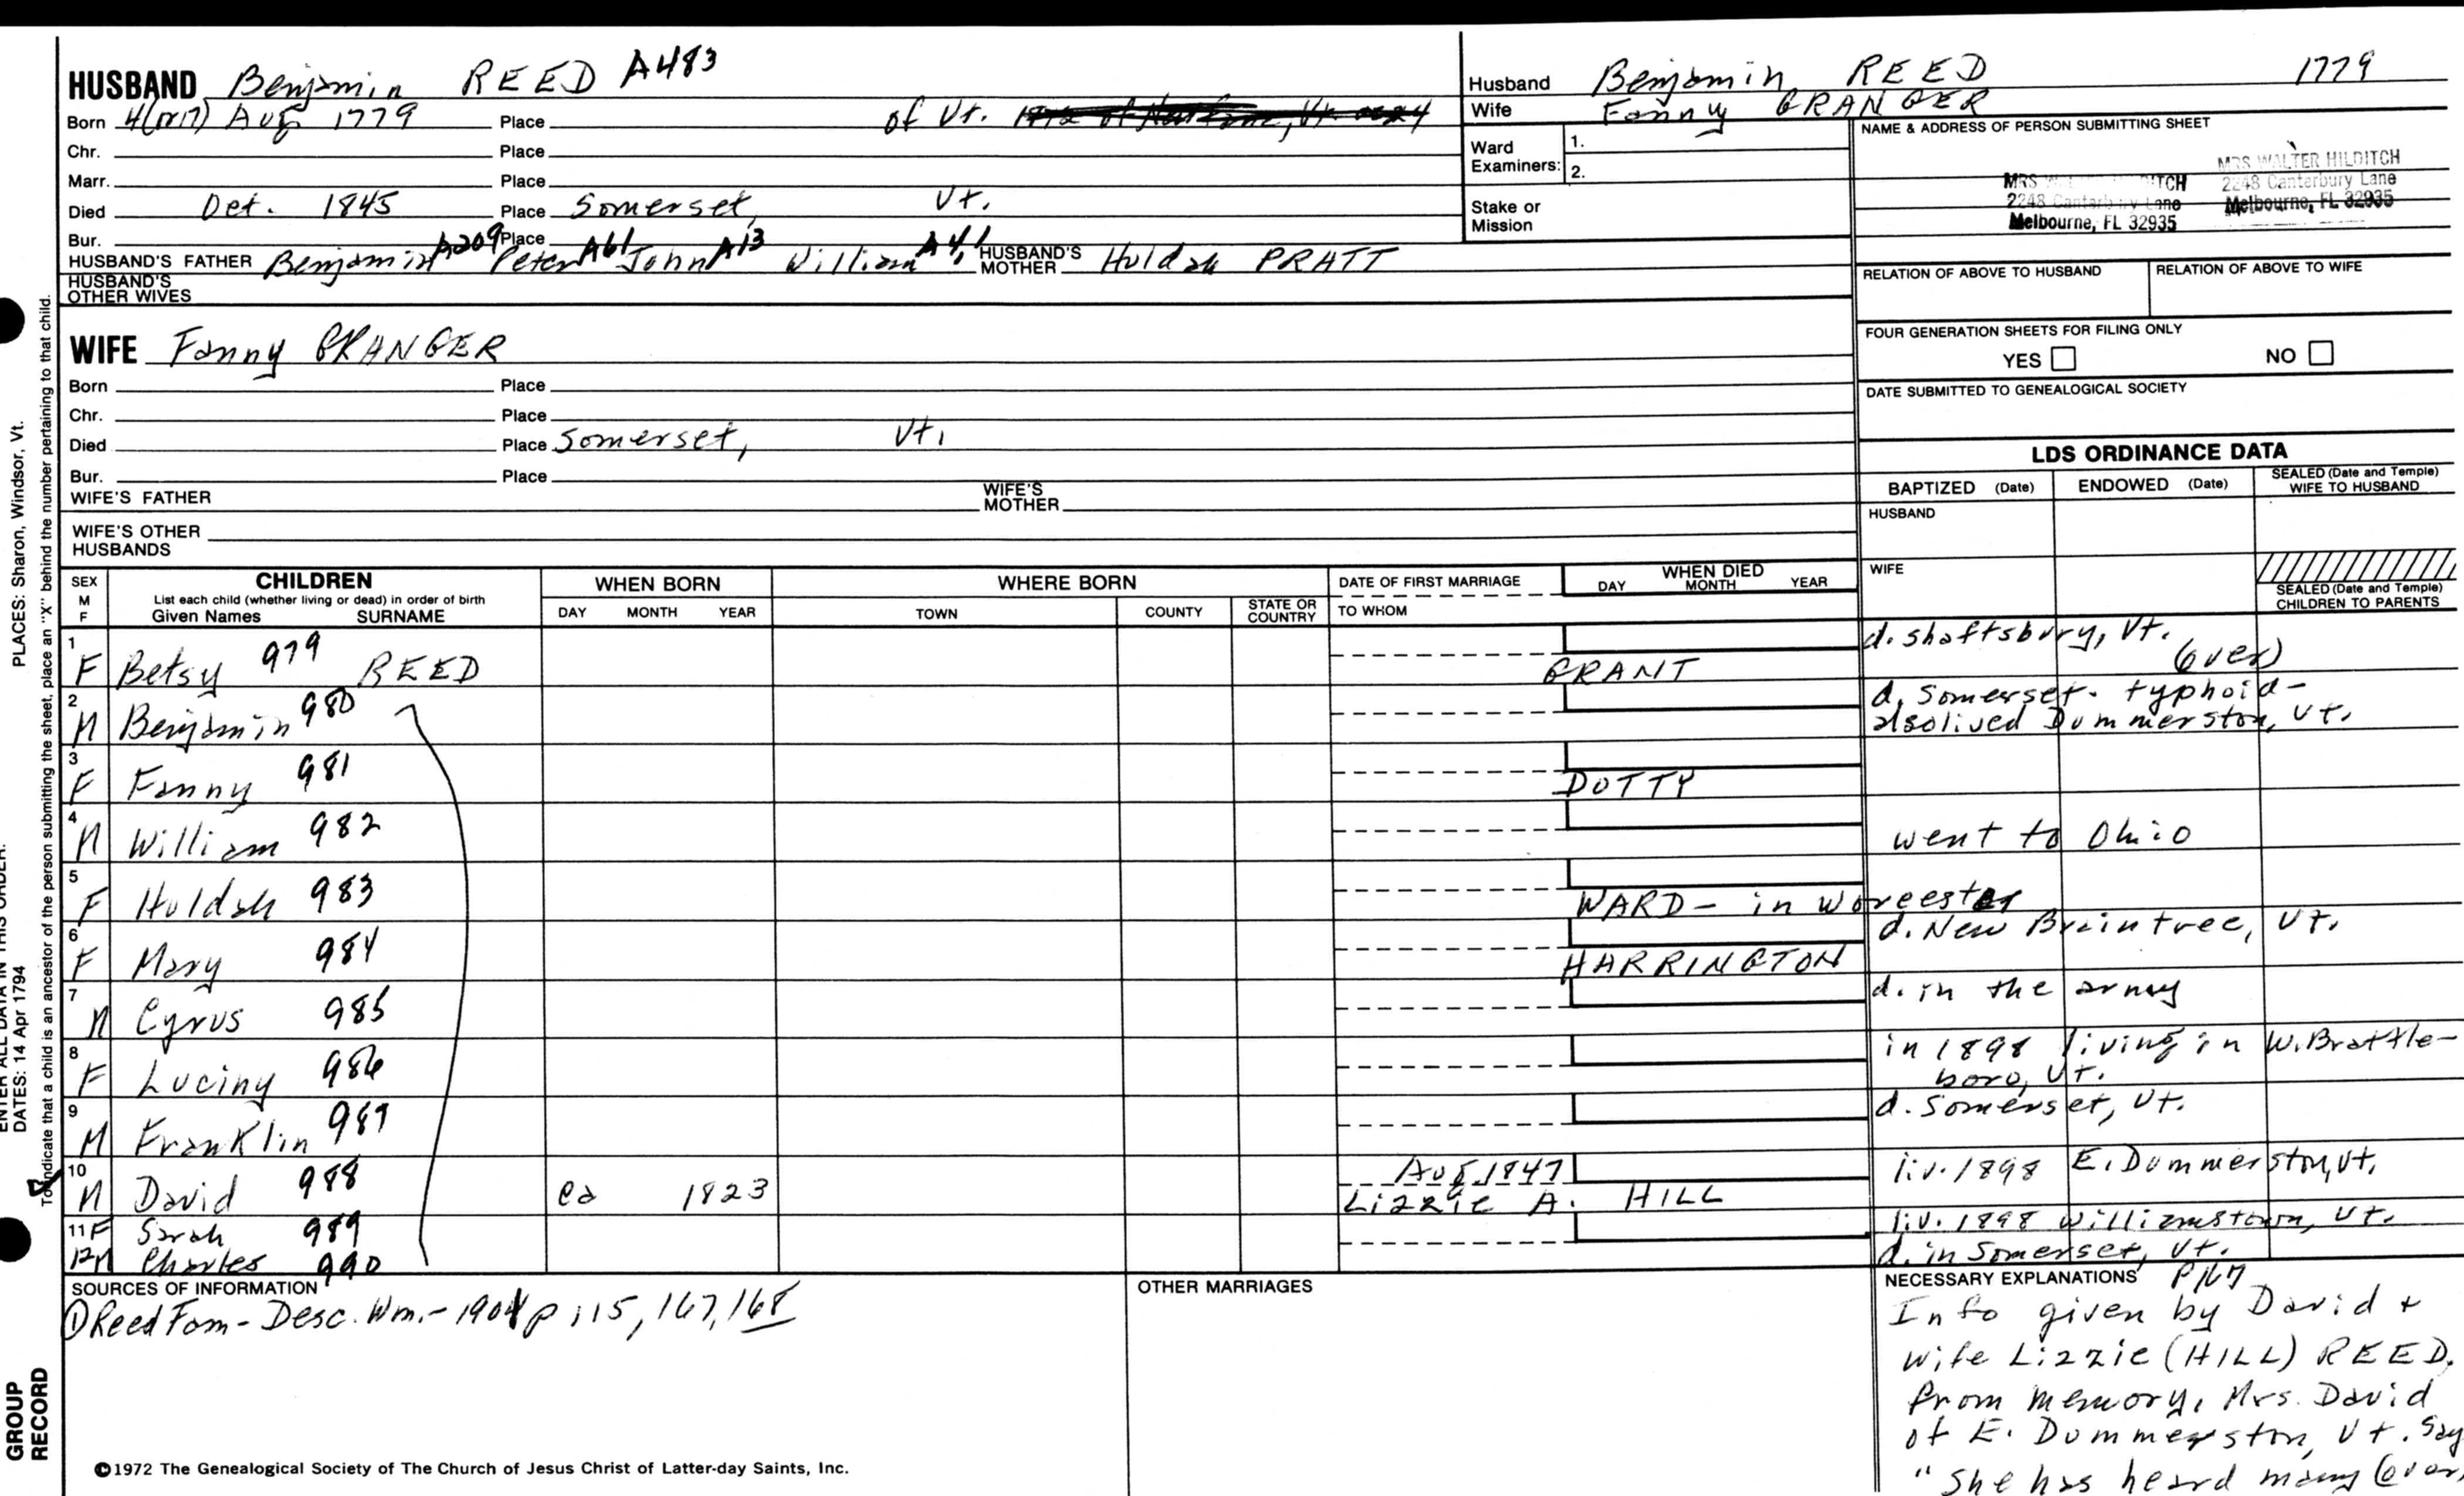 HUSBAND Benjamin REED A483
Born 4(or17) Aug 1779 Place of Vt.
Chr. Place
Marr. Place
Died Oct. 1845 Place Somerset, Vt.
Bur. Place
HUSBAND'S FATHER Benjamin A209 Peter A61 John A13 William A4,1 HUSBAND'S MOTHER Huldah PRATT
HUSBAND'S OTHER WIVES
Husband Benjamin REED 1779
Wife Fanny GRANGER
Ward Examiners: 1.
2.
Stake or Mission
NAME & ADDRESS OF PERSON SUBMITTING SHEET
MRS WALTER HILDITCH
2248 Canterbury Lane
Melbourne, FL 32935
MRS HILDITCH
2248 Canterbury Lane
Melbourne, FL 32935
RELATION OF ABOVE TO HUSBAND RELATION OF ABOVE TO WIFE
FOUR GENERATION SHEETS FOR FILING ONLY
YES NO
DATE SUBMITTED TO GENEALOGICAL SOCIETY
WIFE Fanny GRANGER
Born Place
Chr. Place
Died Place Somerset, Vt.
Bur. Place
WIFE'S FATHER WIFE'S MOTHER
WIFE'S OTHER HUSBANDS
LDS ORDINANCE DATA
BAPTIZED (Date) ENDOWED (Date) SEALED (Date and Temple) WIFE TO HUSBAND
HUSBAND
WIFE
SEALED (Date and Temple) CHILDREN TO PARENTS
SEX M F
CHILDREN
List each child (whether living or dead) in order of birth
Given Names SURNAME
WHEN BORN
DAY MONTH YEAR
WHERE BORN
TOWN COUNTY STATE OR COUNTRY
DATE OF FIRST MARRIAGE
TO WHOM
WHEN DIED
DAY MONTH YEAR
1 F Betsy 979 REED GRANT d. Shaftsbury, Vt. (over)
2 M Benjamin 980 d. Somerset. typhoid- also lived Dummerston, Vt.
3 F Fanny 981 DOTTY
4 M William 982 went to Ohio
5 F Huldah 983 WARD - in Worcester
6 F Mary 984 HARRINGTON d. New Braintree, Vt.
7 M Cyrus 985 d. in the army
8 F Luciny 986 in 1898 living in W. Brattleboro, Vt.
9 M Franklin 987 d. Somerset, Vt.
10 M David 988 ca 1823 Aug 1847 Lizzie A. HILL liv. 1898 E. Dummerston, Vt.
11 F Sarah 989 liv. 1898 Williamstown, Vt.
12 M Charles 990 d. in Somerset, Vt.
SOURCES OF INFORMATION
① Reed Fam - Desc. Wm. - 1901 p 115, 167, 168
OTHER MARRIAGES
NECESSARY EXPLANATIONS P167
Info given by David +
wife Lizzie (HILL) REED.
From memory, Mrs. David
of E. Dummerston, Vt. Say
"She has heard many (over)
©1972 The Genealogical Society of The Church of Jesus Christ of Latter-day Saints, Inc.
ENTER ALL DATA IN THIS ORDER:
DATES: 14 Apr 1794 PLACES: Sharon, Windsor, Vt.
To indicate that a child is an ancestor of the person submitting the sheet, place an "X" behind the number pertaining to that child.
GROUP RECORD